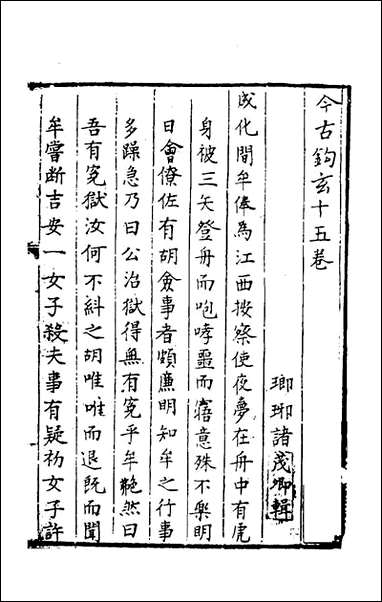 今古鈎玄十五卷
瑯琊諸茂卿輯
成化間牟俸爲江西按察使夜夢在舟中有虎
身被三矢登舟而咆哮噩而寤意殊不樂明
日會僚佐有胡僉事者頗廉明知牟之行事
多躁急乃曰公治獄得無有冤乎牟艴然曰
吾有冤獄汝何不糾之胡唯唯而退既而聞
牟嘗断吉安一女子殺夫事有疑初女子許